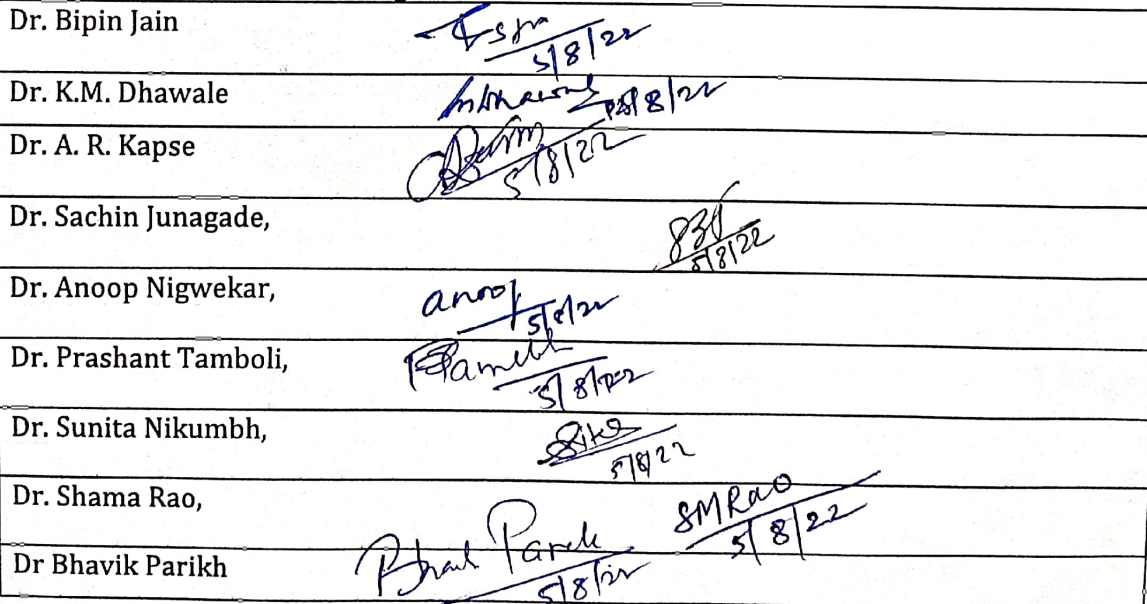 Dr. Bipin Jain
5/8/22
Dr. K.M. Dhawale
5/8/22
Dr. A. R. Kapse
5/8/22
Dr. Sachin Junagade,
5/8/22
Dr. Anoop Nigwekar,
anoop
5/8/22
Dr. Prashant Tamboli,
5/8/22
Dr. Sunita Nikumbh,
5/8/22
Dr. Shama Rao,
SMRao
5/8/22
Dr Bhavik Parikh
5/8/22